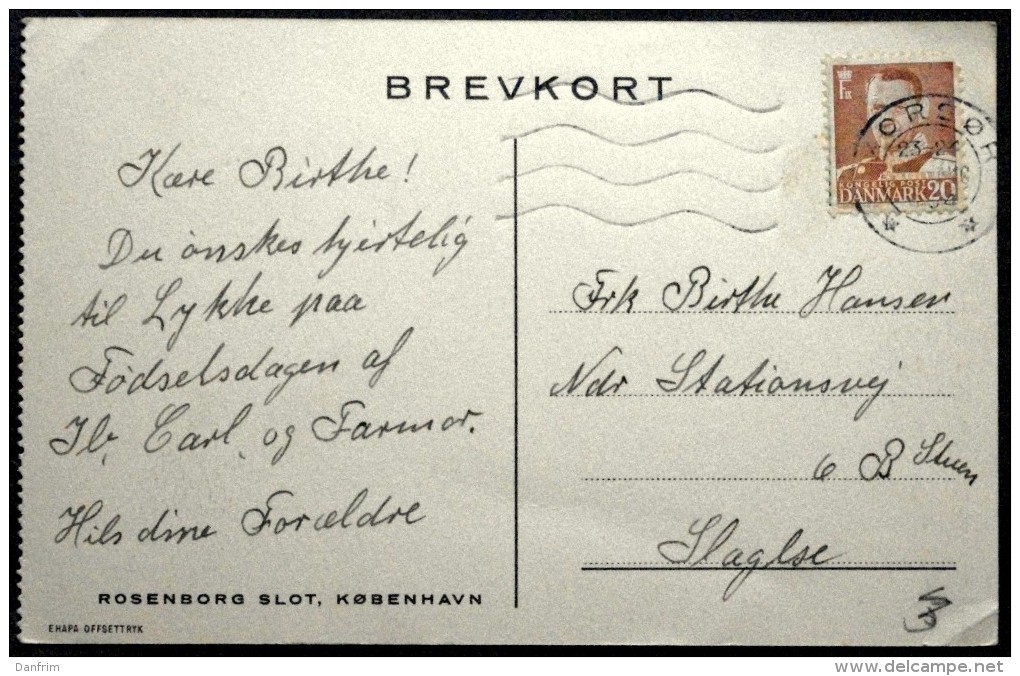 BREVKORT
Kære Birthe!
Du ønskes hjertelig
til Lykke paa
Fødselsdagen af
Ib, Carl, og Farmor.
Hils dine Forældre
ROSENBORG SLOT, KØBENHAVN
EHAPA OFFSETTRYK
F IX
KONGELIG POST
DANMARK 20
KORSØR
23-24
Frk Birthe Hansen
Ndr Stationsvej
6 B Stuen
Slaglse
Danfrim
delcampe.net